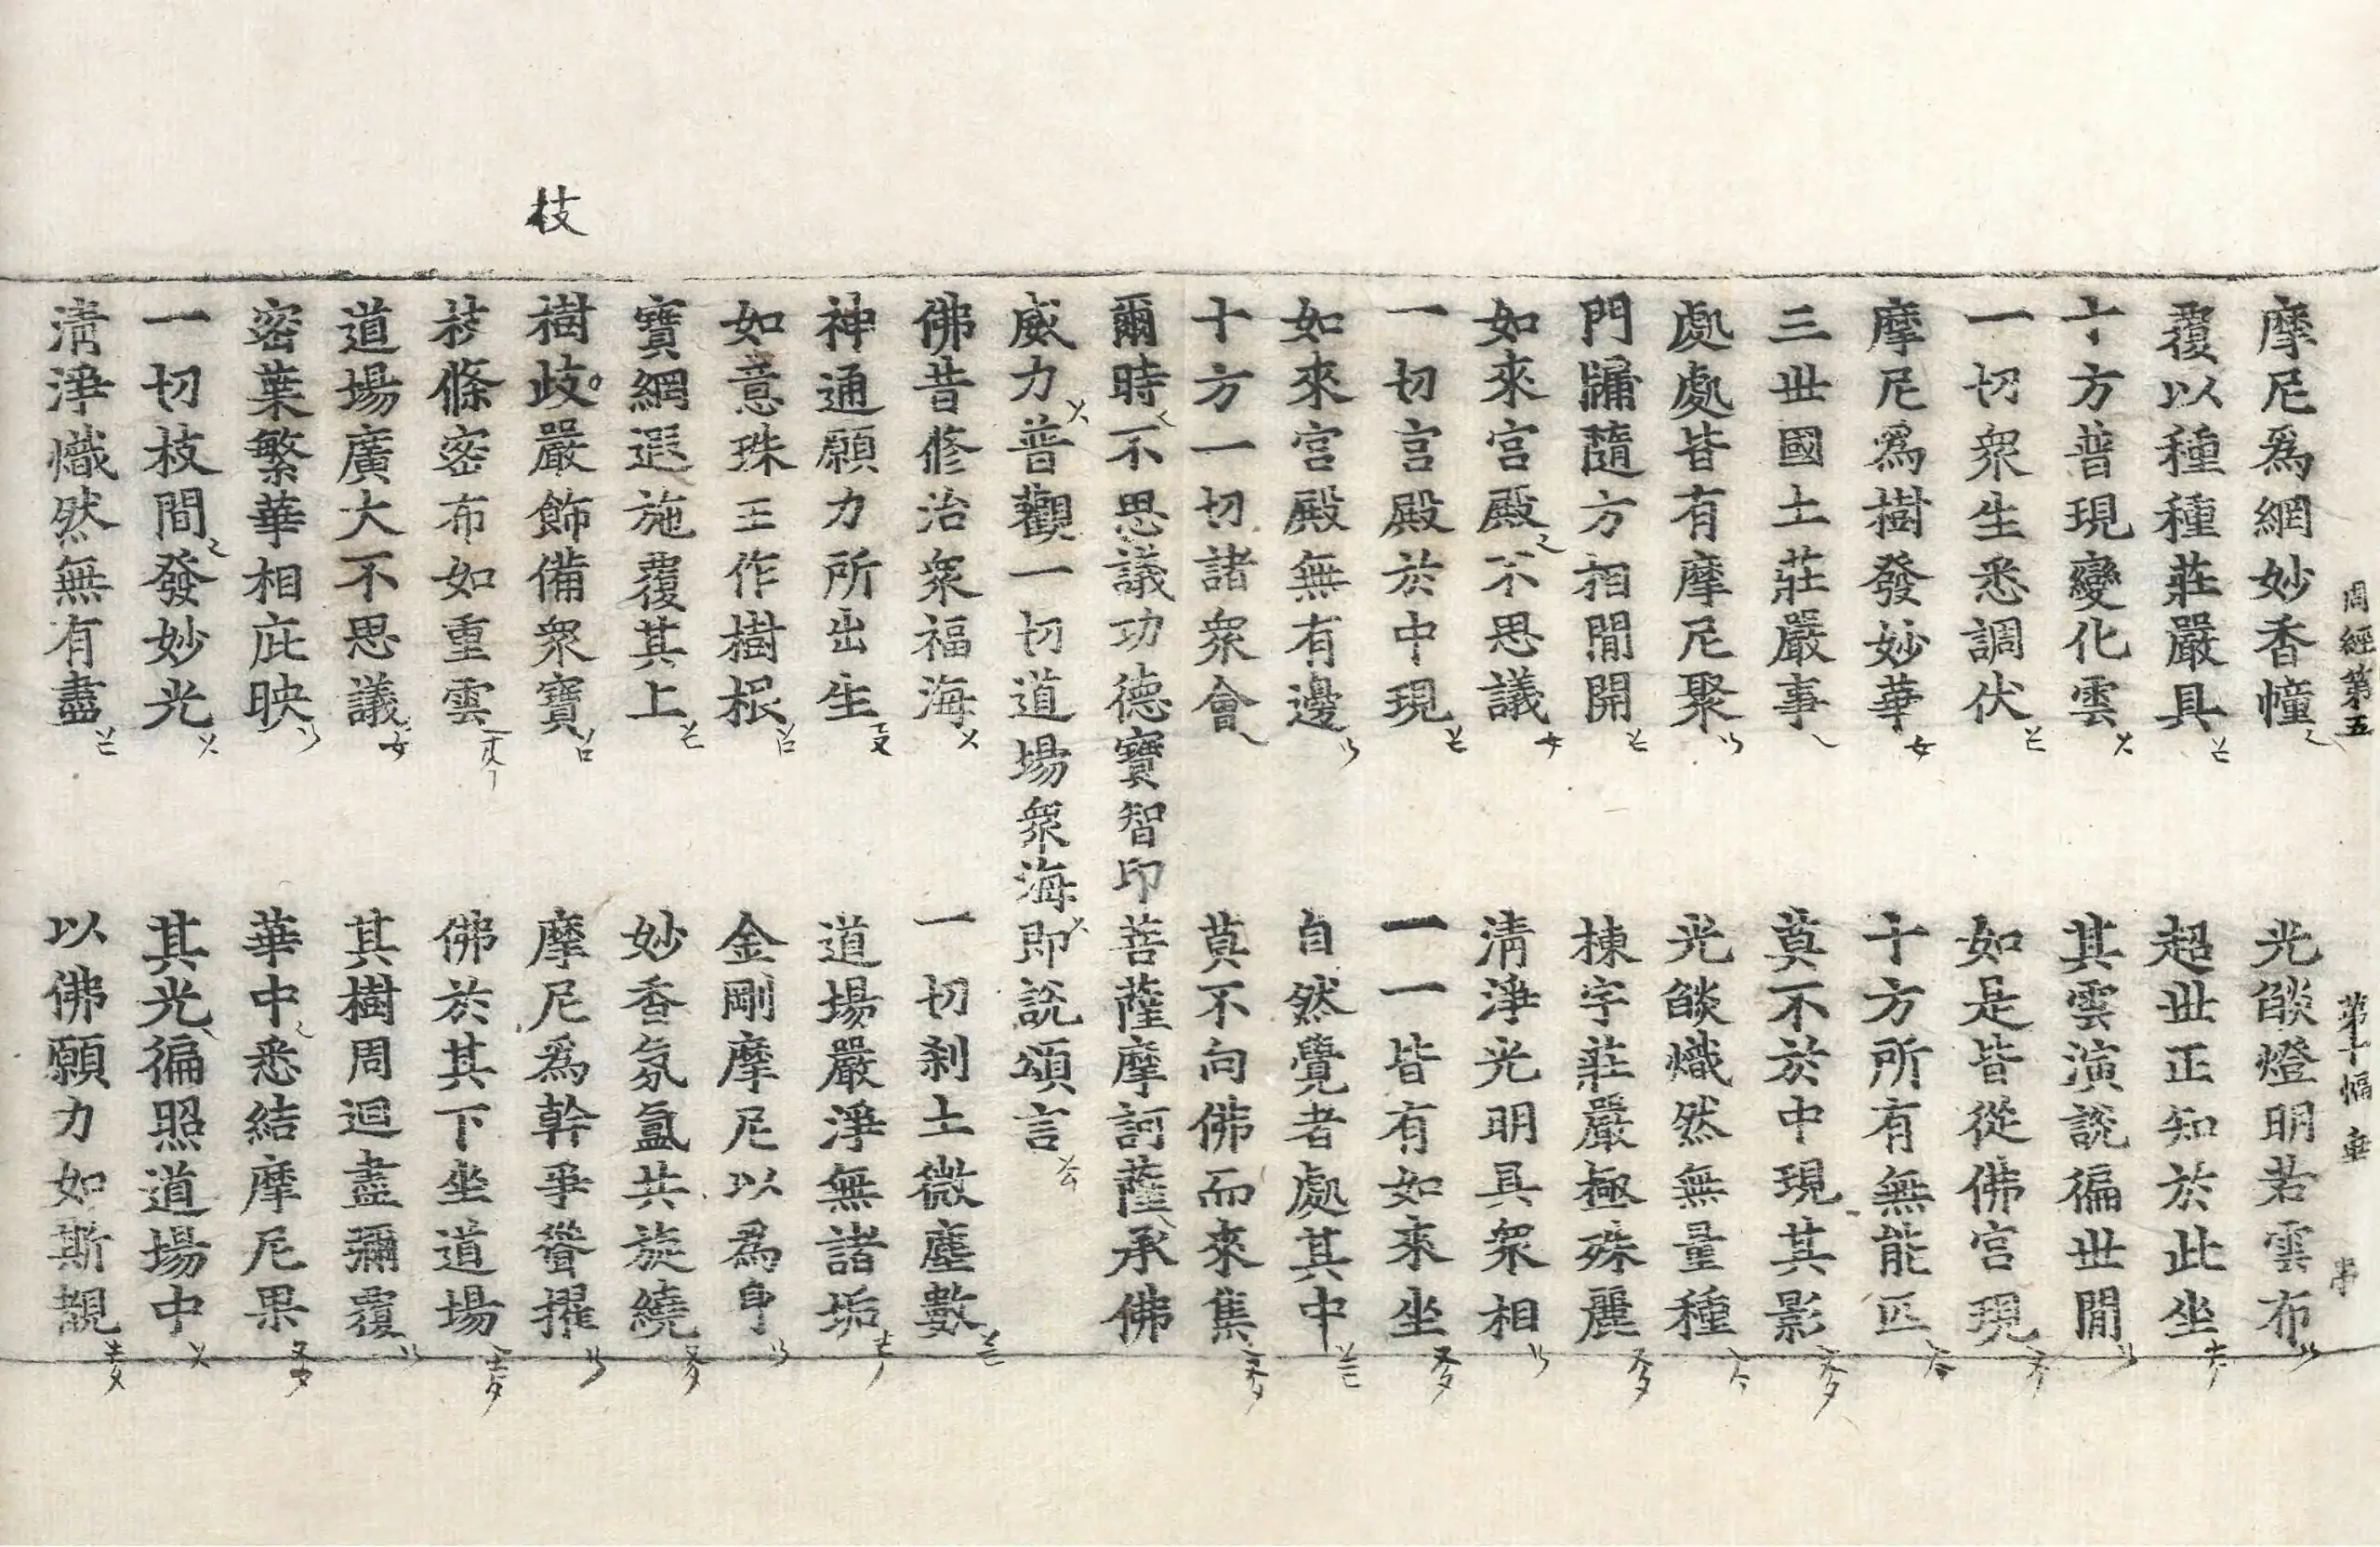 周經第五 第十幅 垂
摩尼爲網妙香幢 光𦦨燈明若雲布
覆以種種莊嚴具 超世正知於此坐
十方普現變化雲 其雲演說徧世閒
一切衆生悉調伏 如是皆從佛宮現
摩尼爲樹發妙華 十方所有無能匹
三世國土莊嚴事 莫不於中現其影
處處皆有摩尼聚 光𦦨熾然無量種
門牖隨方相閒開 棟宇莊嚴極殊麗
如來宮殿不思議 清淨光明具衆相
一切宮殿於中現 一一皆有如來坐
如來宮殿無有邊 自然覺者處其中
十方一切諸衆會 莫不向佛而來集
爾時不思議功德寶智印菩薩摩訶薩承佛
威力普觀一切道場衆海即説頌言
佛昔修治衆福海 一切刹土微塵數
神通願力所出生 道場嚴淨無諸垢
如意珠王作樹根 金剛摩尼以爲身
寶網遐施覆其上 妙香氛氳共旋繞
枝
樹歧嚴飾備衆寶 摩尼爲幹爭聳擢
枝條密布如重雲 佛於其下坐道場
道場廣大不思議 其樹周迴盡彌覆
密葉繁華相庇映 華中悉結摩尼果
一切枝間發妙光 其光徧照道場中
清淨熾然無有盡 以佛願力如斯覩